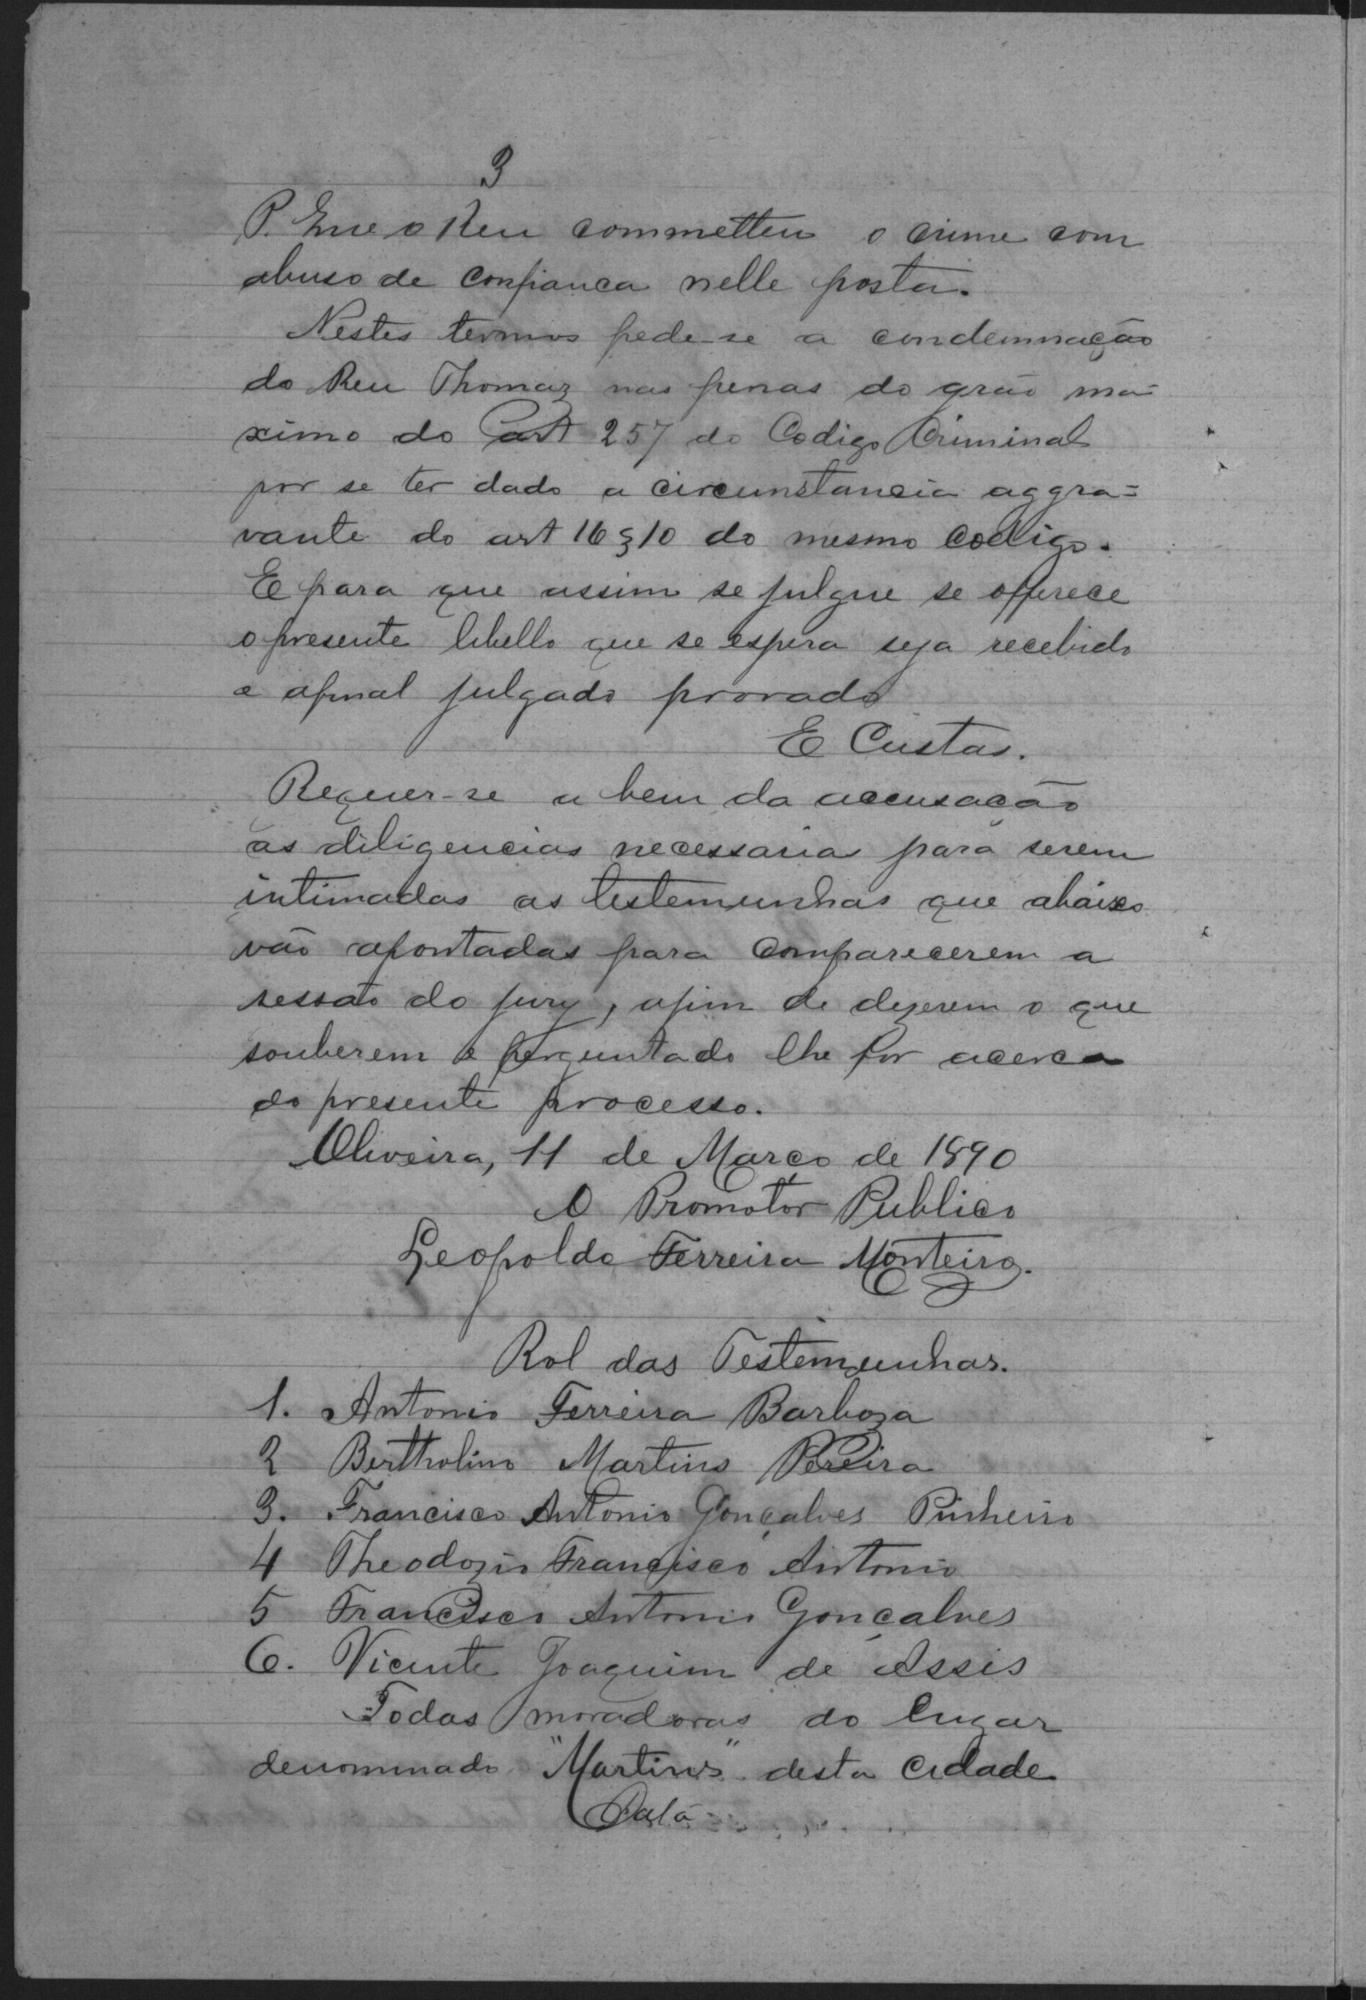 3
P. Que o Reu commetteu o crime com
abuso de confianca nelle posta.
Nestes termos pede-se a condemnação
do Reu Thomaz nas penas do gráo ma-
ximo do art 257 do Codigo Criminal
por se ter dado a circumstancia aggra=
vante do art 16 § 10 do mesmo codigo.
E para que assim se julgue se offerece
o presente libello que se espera seja recebido
e afinal julgado provado
E Custas.
Requer-se a bem da accusacão
as diligencias necessarias para serem
intimadas as testemunhas que abaixo
vão apontadas para comparecerem a
sessão do jury, afim de dizerem o que
souberem e perguntado lhe for acerca
do presente processo.
Oliveira, 11 de Março de 1890
O Promotor Publico
Leopoldo Ferreira Monteiro.
Rol das Testemunhas.
1. Antonio Ferreira Barboza
2 Bertholino Martins Pereira
3. Francisco Antonio Gonçalves Pinheiro
4 Theodozio Francisco Antonio
5 Francisco Antonio Gonçalves
6. Vicente Joaquim de Assis
Todas moradoras do lugar
denominado "Martins" desta cidade